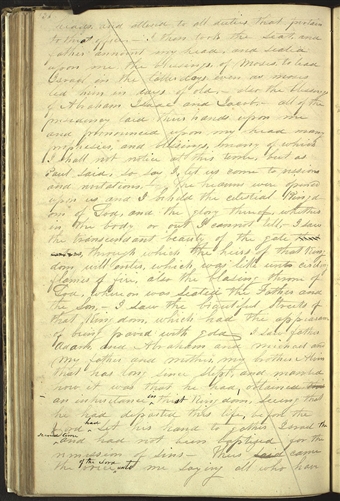 and attend to all duties that pertain
to that office. I then took the seat, and
father annoint my head, and sealed
upon me the blessings of Moses to lead
Israel in the latter days even as moses
led him in days of old,— also the blessings
of Abraham Isaac and Jacob.— all of the
presidency laid their hands upon me
and pronounced upon my head many
prophesies, and blessings, many of which
I shall not notice at this time, but as
Paul said, so say I, let us come to visions
and revelations, the heavens were opened
upon us and I beheld the celestial Kingd
om of God, and the glory thereof, whether
in the body or out I cannot tell,— I saw
the transcendant beauty of the gate
through which the heirs of that King
dom will enter, which was like unto circling
flames of fire, also the blasing throne of
God, whereon was seated the Father and
the Son,— I saw the beautiful streets of
that Kingdom, which had the appearance
of being paved with gold— I saw father
Adam and Abraham and Michael and
my father and mother, my brother Alvin
that has long since slept, and marvled
how it was that he had obtained
an inheritance in that Kingdom, seeing that
he had departed this life, before the
Lord had set his hand to gather Israel the
second time and had not been baptised for the
remission of sins— Thus came
the voice of the Lord unto me saying all who have